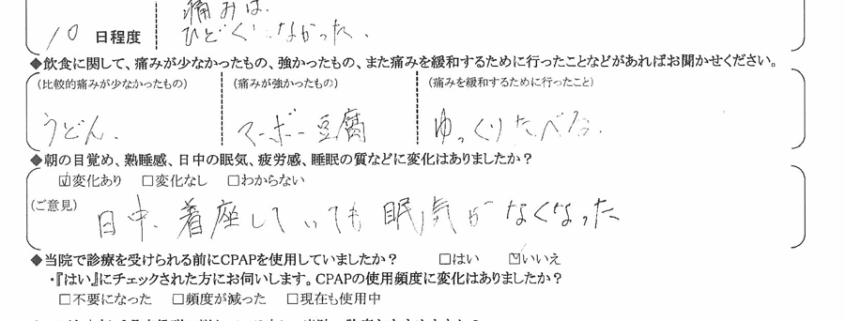 痛みは、
10 日程度 ひどくなかった。
◆飲食に関して、痛みが少なかったもの、強かったもの、また痛みを緩和するために行ったことなどがあればお聞かせください。
(比較的痛みが少なかったもの) (痛みが強かったもの) (痛みを緩和するために行ったこと)
うどん. マーボー豆腐 ゆっくりたべる.
◆朝の目覚め、熟睡感、日中の眠気、疲労感、睡眠の質などに変化はありましたか?
☑変化あり □変化なし □わからない
(ご意見) 日中、着座していても眠気がなくなった
◆当院で診療を受けられる前にCPAPを使用していましたか? □はい ☑いいえ
・『はい』にチェックされた方にお伺いします。CPAPの使用頻度に変化はありましたか?
□不要になった □頻度が減った □現在も使用中